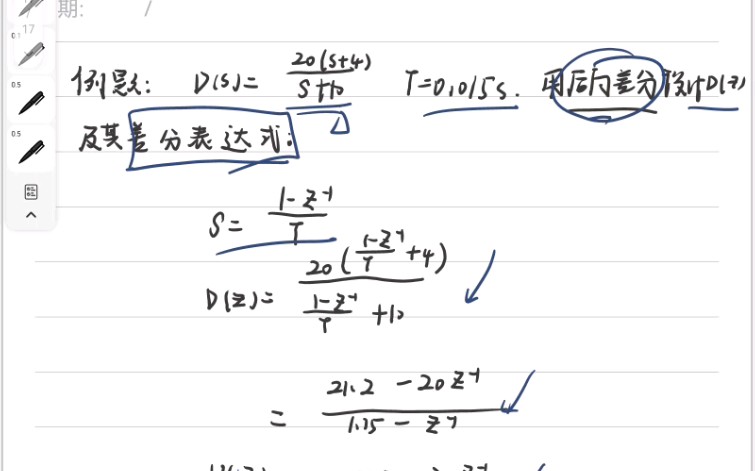 期: /
0.1 17
0.5
0.5
例题: D(s)= 20(s+4) / s+10 T=0.015s. 用后向差分设计D(z)
及其差分表达式:
S= 1-z⁻¹ / T
D(z)= 20(1-z⁻¹/T +4) / 1-z⁻¹/T +10
= 21.2 - 20z⁻¹ / 1.15 - z⁻¹